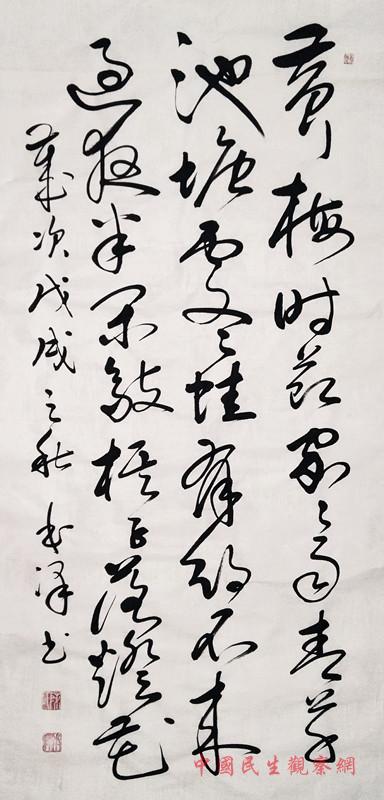 黄梅时节家々雨青草
池塘处々蛙有约不来
过夜半闲敲棋子落燈花
岁次戊戌之秋 书
中國民生觀察網